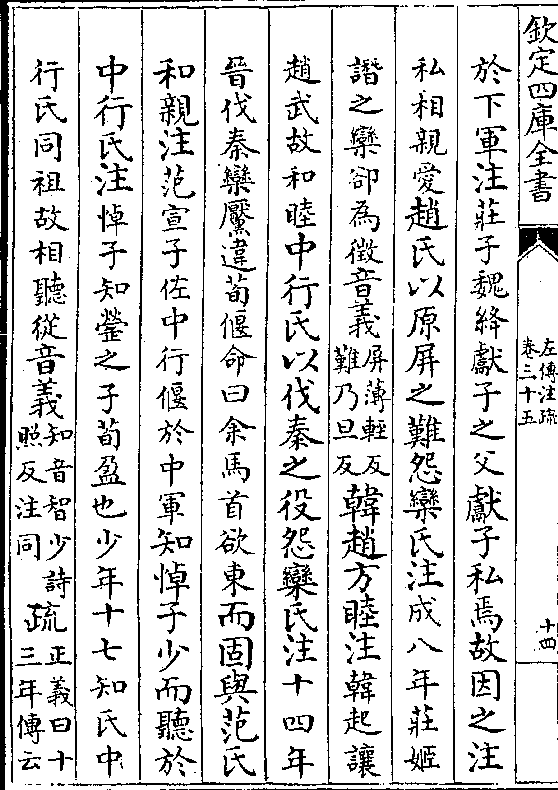 欽定四庫全書
左傳注疏
卷三十五
十四
於下軍注莊子魏絳獻子之父獻子私焉故因之注
私相親愛趙氏以原屏之難怨欒氏注成八年莊姬
譖之欒卻為徵音義屏薄輕反難乃旦反韓趙方睦注韓起讓
趙武故和睦中行氏以伐秦之役怨欒氏注十四年
晉伐秦欒黶違荀偃命曰余馬首欲東而固與范氏
和親注范宣子佐中行偃於中軍知悼子少而聽於
中行氏注悼子知罃之子荀盈也少年十七知氏中
行氏同祖故相聽從音義知音智少詩照反注同疏正義曰十三年傳云